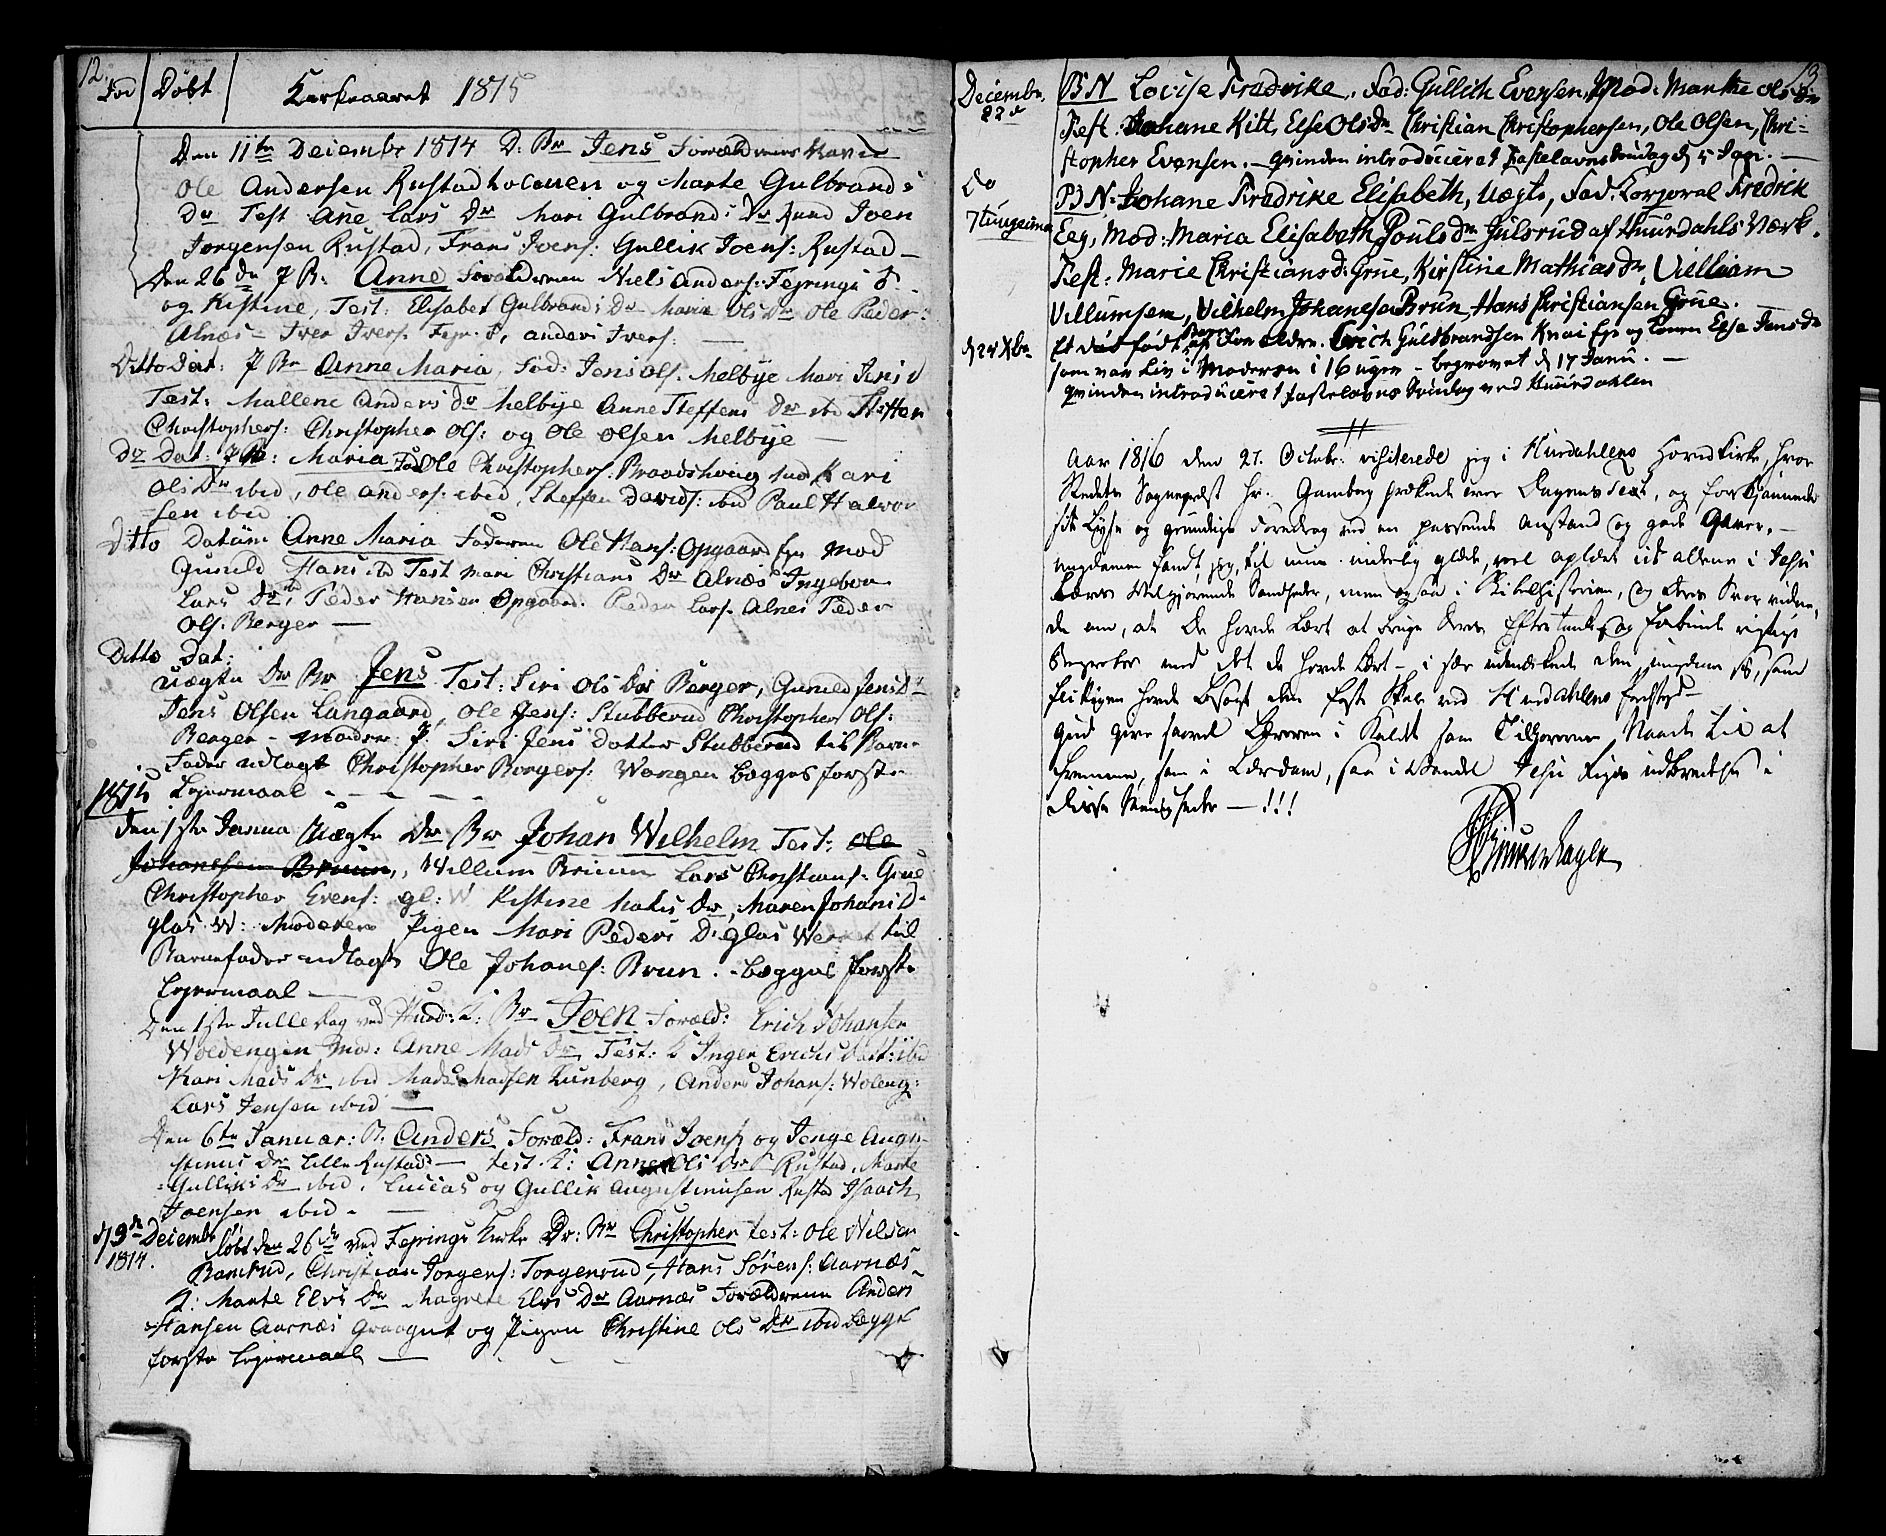 12.
Fød Døbt Kirkeaaret 1815
Den 11te Decembr 1814 D: Br Jens Forældrenes Navne
Ole Andersen Rustadholmen og Marte Gulbrands
Dr Test Ane Lars Dr Mari Gulbrands Dr Knud Joen
Jorgensen Rustad, Frans Joens: Gullik Joens: Rustad
Den 26de J B: Anne Forældrene Niels Anders: Fejrings
og Kistine, Test: Elisabet Gulbrands Dr Marie Ols Dr Ole Peder:
Alnæs Iver Ivers. Anders Ivers:
Ditto Dat: J Br Anne Maria, Fad: Jens Ols: Melbye Mari Jens d
Test: Mallene Anders dr Melbye Anne Steffens Dr ibid Steffen
Christophers: Christopher Ols: og Ole Olsen Melbye
Do Dat: J B: Maria Fad Ole Christophers: Braadshoug Kari
Ols Dr ibid, Ole Anders: ibid, Steffen Davids: ibid Paul Halvor
sen ibid
Ditto Datum Anne Maria Faderen Ole Hans: Opgaard Mod
Gunild Hans ibid Test Mari Christians Dr Alnæs Ingebor
Lars Dr ibd, Peder Hansen Opgaard. Peder Lars. Alnes Peder
Ols: Berger
Ditto Dat:
uægte Dr Br Jens Test: Siri Ols Dr Berger, Gunild Jens Dr
Jens Olsen Langaard, Ole Jens: Stubberud Christopher Ols:
Berger - Moder P. Siri Jens Dotter Stubberud til Barne
Fader udlagt Christopher Borgers: Wangen begges første
1815 Lejermaal
den 1ste Janua Uægte Dr Br Johan Wilhelm Test: Ole
Johansen Bruun, Willum Bruun Lars Christians: Grue
Christopher Evens: gl: W Kistine Matis Dr, Maren Johans D
glas W: Moderen Pigen Mari Peders D: Glas Werket til
Barnefader udlagt Ole Johanes: Brun. begges første
Lejermaal
Den 1ste Julle Dag ved Br Joen Foræld: Erich Johansen
Woldengen Mod: Anne Mads Dr, Test: Inger Erichs Datt: ibd
Kari Mads Dr ibid Mads Madsen Tunberg, Anders Johans: Woleng:
Lars Jensen ibid
Den 6te Januar: B. Anders Foræld: Frans Joens og Jenge Augu
stinus Dr Lille Rustad Test. Anne Ols Dr Rustad, Marte
Gulliks Dr ibid. Lucias og Gullik Augustinusen Rustad Isaach
Joensen ibid
d 9n Decembr døbt den 26de ved Fejrings Kirke Dr: Br Christopher Test: Ole Nilsen
1814. Christian Jorgens: Torgenrud, Hans Sörens: Aarnæs
Marte Elvs Dr Magrete Elvs Dr Aarnæs Forældrene Anders
Hansen Aarnæs og Pigen Christine Ols Dr ibid begges
første Lejermaal
13.
Decembr. BN Lovise Fredrike, Fad: Gullich Evensen, Mod: Marthe Olsdn
22d Test: Johane Kitt, Else Olsdn Christian Christophersen, Ole Olsen, Chri-
stopher Evensen. - qvinden introduceret Fastelavns Søndag
Do BN: Johane Fredrike Elisabeth, Uægte, Fad: Corporal Fredrik
Eeg, Mod: Maria Elisabeth Poulsdn Julsrud af Huurdahls Værk.
Test: Marie Christiansd: Grue, Kirstine Mathiasdn, Villiam
Villumsen, Vilhelm Johanesen Brun, Hans Christiansen Grue.
d 24 Xbr Et død født af Forældre. Erich Guldbrandsen Knai og Konen Else Jensdn
som var Liv i Moderen i 16 uger - begravet d 17 Janu. -
qvinden introduceret Fastelavns Søndag ved Huurdahlen
Aar 1816 den 27. Octobr. visiterede jeg i Hurdahlens Hovedkirke, hvor
Stedets Sognepræst Hr. Gamborg prækede over Dagens Text, og
sit Lyse og grundige Foredrag ved en passende Anstand og gode Gaver. -
Ungdommen fandt jeg, til min inderlig glæde, vel oplært i Jesu
Læres Velgjørende Sandheder, men ogsaa i Bibelhistorien, og deres Svar vidne-
de om, at de havde lært at bruge deres Eftertanke og forbinde rigtige
Begreber med det de havde lært - i sær udmærkede den ungdom sig, som
flittigen havde besøgt den faste Skole ved Hurdahlens
Gud give saavel Læreren i Kaldet som Tilhørerne Naade til at
fremme, saa i Lærdom, saa i Wandel Jesu Riges udbredelse i
disse Menigheder - !!!